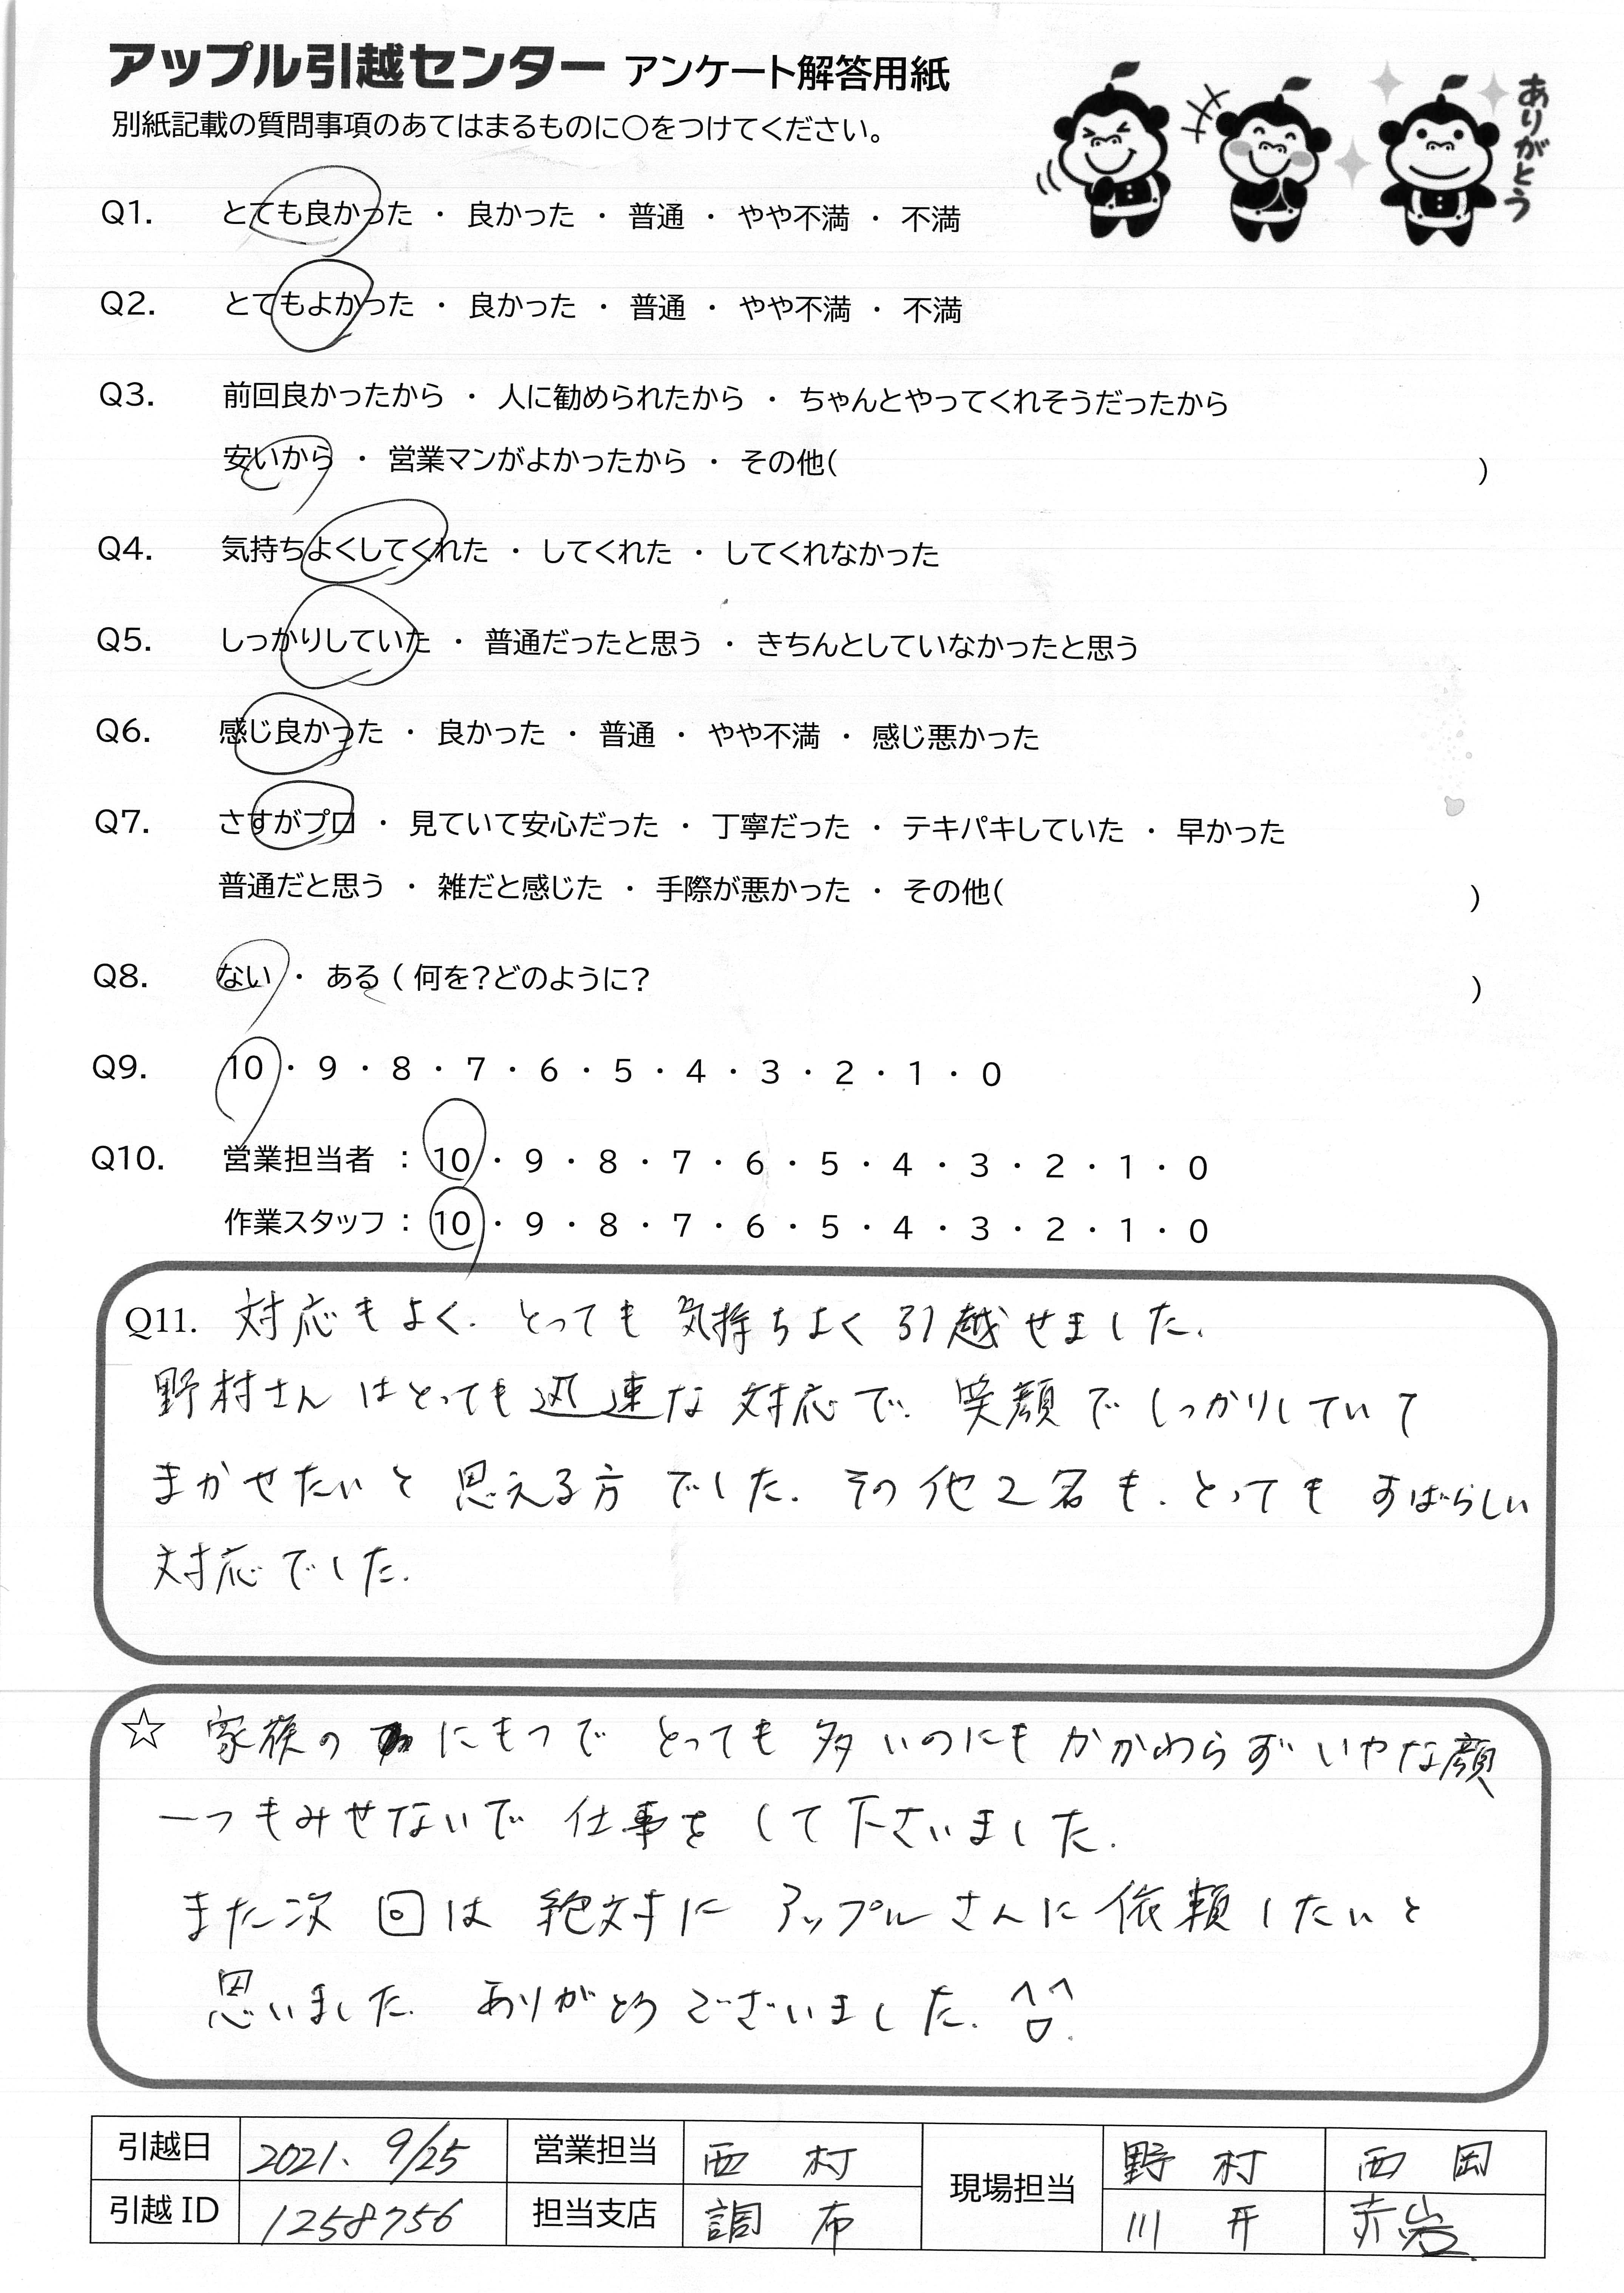 アップル引越センター アンケート解答用紙
別紙記載の質問事項のあてはまるものに○をつけてください。
ありがとう
Q1. とても良かった ・ 良かった ・ 普通 ・ やや不満 ・ 不満
Q2. とてもよかった ・ 良かった ・ 普通 ・ やや不満 ・ 不満
Q3. 前回良かったから ・ 人に勧められたから ・ ちゃんとやってくれそうだったから
安いから ・ 営業マンがよかったから ・ その他( )
Q4. 気持ちよくしてくれた ・ してくれた ・ してくれなかった
Q5. しっかりしていた ・ 普通だったと思う ・ きちんとしていなかったと思う
Q6. 感じ良かった ・ 良かった ・ 普通 ・ やや不満 ・ 感じ悪かった
Q7. さすがプロ ・ 見ていて安心だった ・ 丁寧だった ・ テキパキしていた ・ 早かった
普通だと思う ・ 雑だと感じた ・ 手際が悪かった ・ その他( )
Q8. ない ・ ある ( 何を?どのように? )
Q9. 10 ・ 9 ・ 8 ・ 7 ・ 6 ・ 5 ・ 4 ・ 3 ・ 2 ・ 1 ・ 0
Q10. 営業担当者 : 10 ・ 9 ・ 8 ・ 7 ・ 6 ・ 5 ・ 4 ・ 3 ・ 2 ・ 1 ・ 0
作業スタッフ : 10 ・ 9 ・ 8 ・ 7 ・ 6 ・ 5 ・ 4 ・ 3 ・ 2 ・ 1 ・ 0
Q11. 対応もよく、とっても気持ちよく引越せました。
野村さんはとっても 速な対応で、笑顔でしっかりしていて
まかせたいと思える方でした。その他2名も、とってもすばらしい
対応でした。
☆ 家族のにもつで とっても多いのにもかかわらずいやな顔
一つもみせないで仕事をして下さいました。
また次回は絶対にアップルさんに依頼したいと
思いました。ありがとうございました。
引越日 2021. 9/25 営業担当 西村 現場担当 野村 西岡
引越ID 1258756 担当支店 調布 川井 赤岩